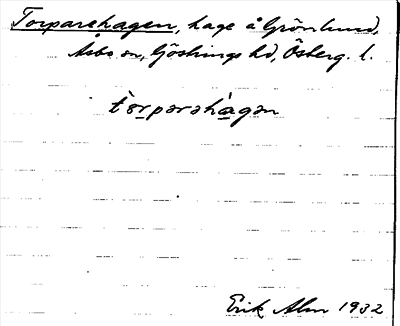 Torparehagen, hage å Grönlund,
Asbo sn, Göstrings hd, Österg. l.
tòrparəhàgən
Erik Alm 1932